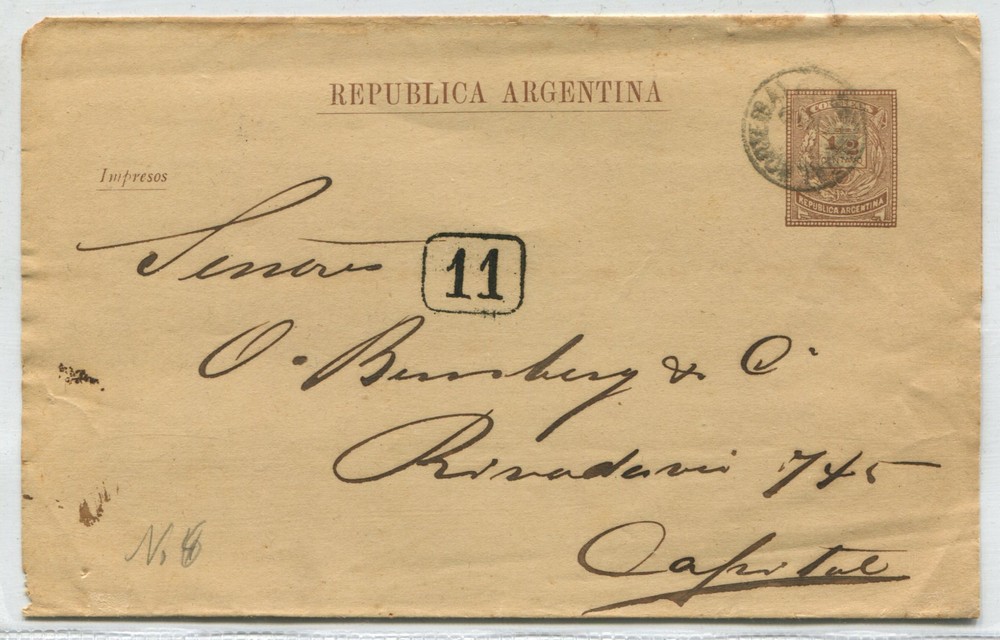 REPUBLICA ARGENTINA
Impresos
CORREOS
1/2
REPUBLICA ARGENTINA
Señores
11
O. Bemberg & C.
Rivadavia 745
Capital